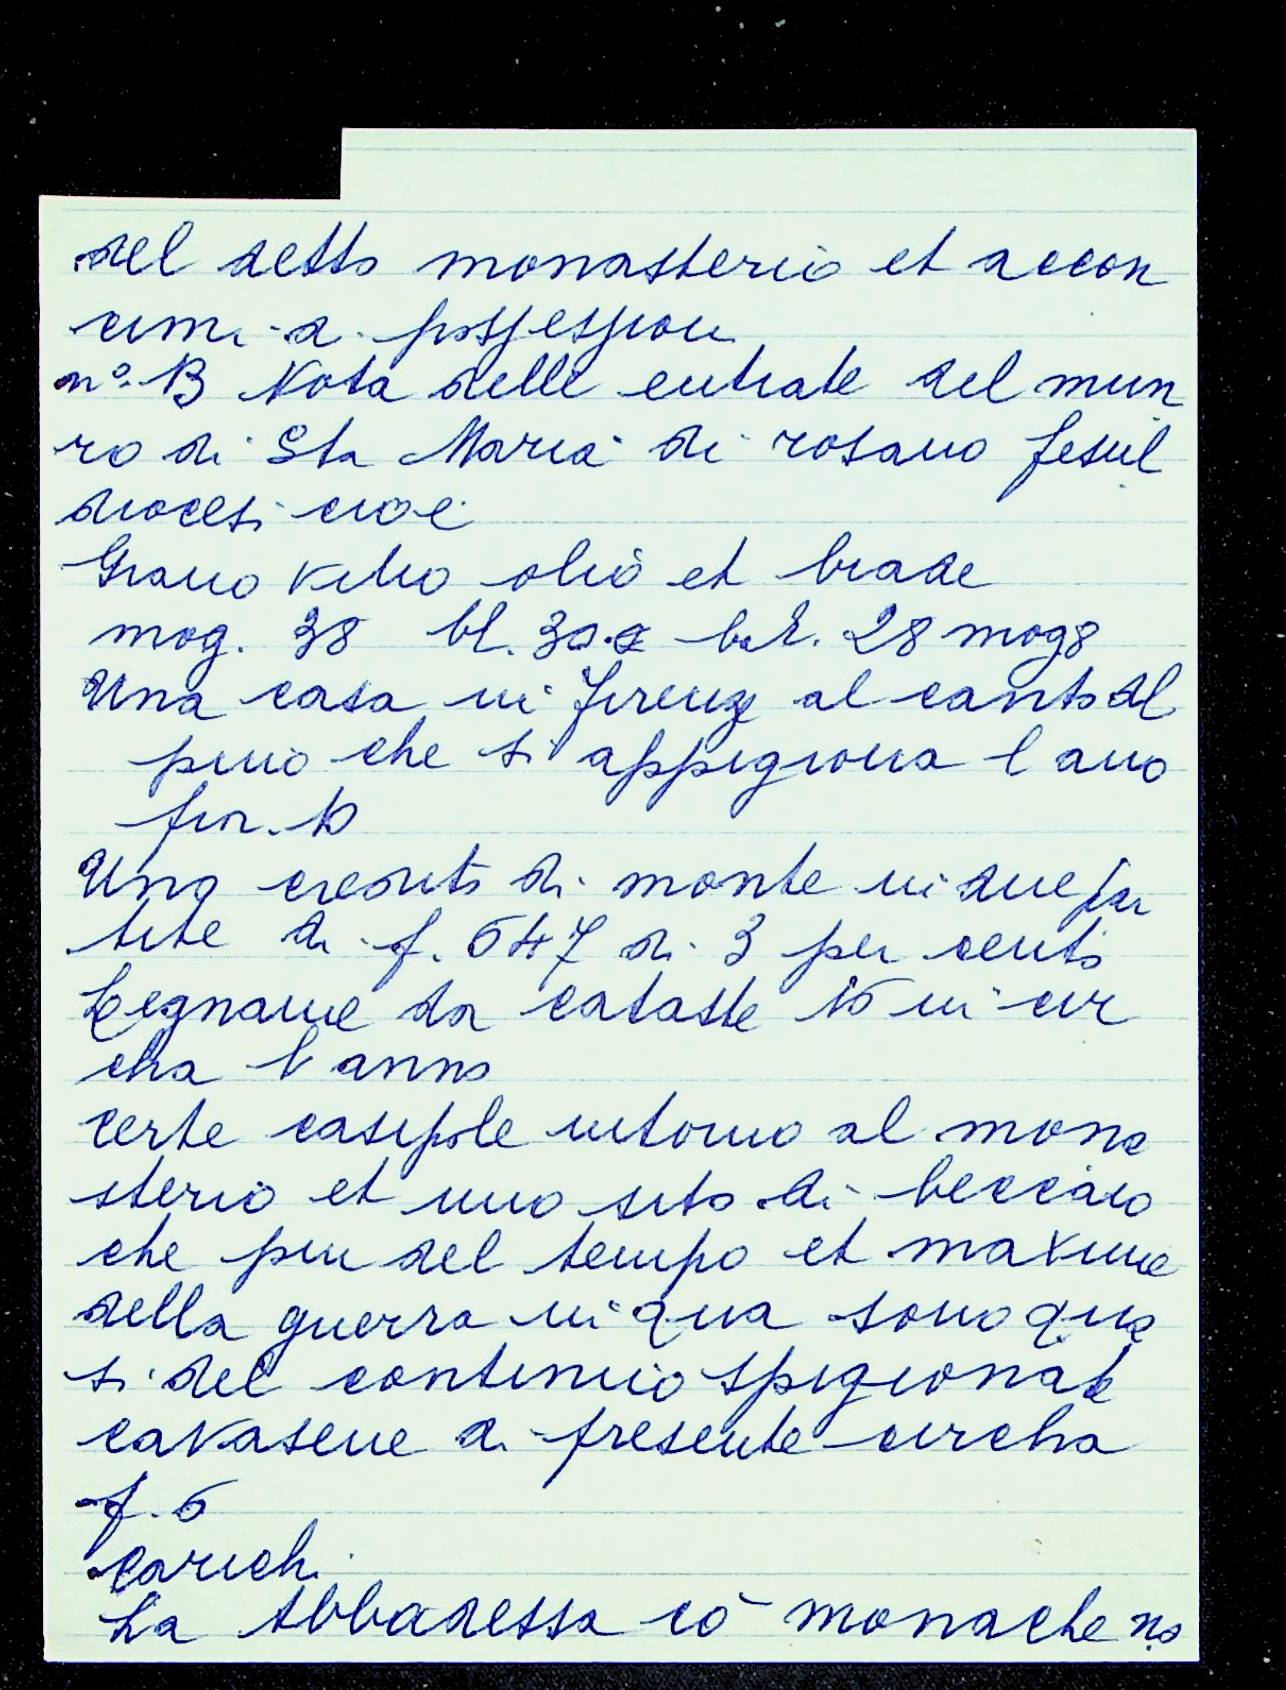 del detto monasterio et accon
cimi a possessioni
n°. B Nota delle entrate del mun
ro di Sta Maria di rosano fesul
diocesi cioè
Grano vino olio et biade
mog. 38 bl. 300 bar. 28 mog 8
Una casa in firenze al canto al
pino che si appigiona l ano
fior. 10
Uno credito di monte in due par
tite di f. 647 di 3 per cento
Legname da cataste 15 in cir
cha l anno
certe casipole intorno al mona
sterio et uno sito di beccaio
che piu del tempo et maxime
della guerra in qua sono qua
si del continuio spigionate
cavasene di presente circha
f. 6
carichi
La Abbadessa cō monache no